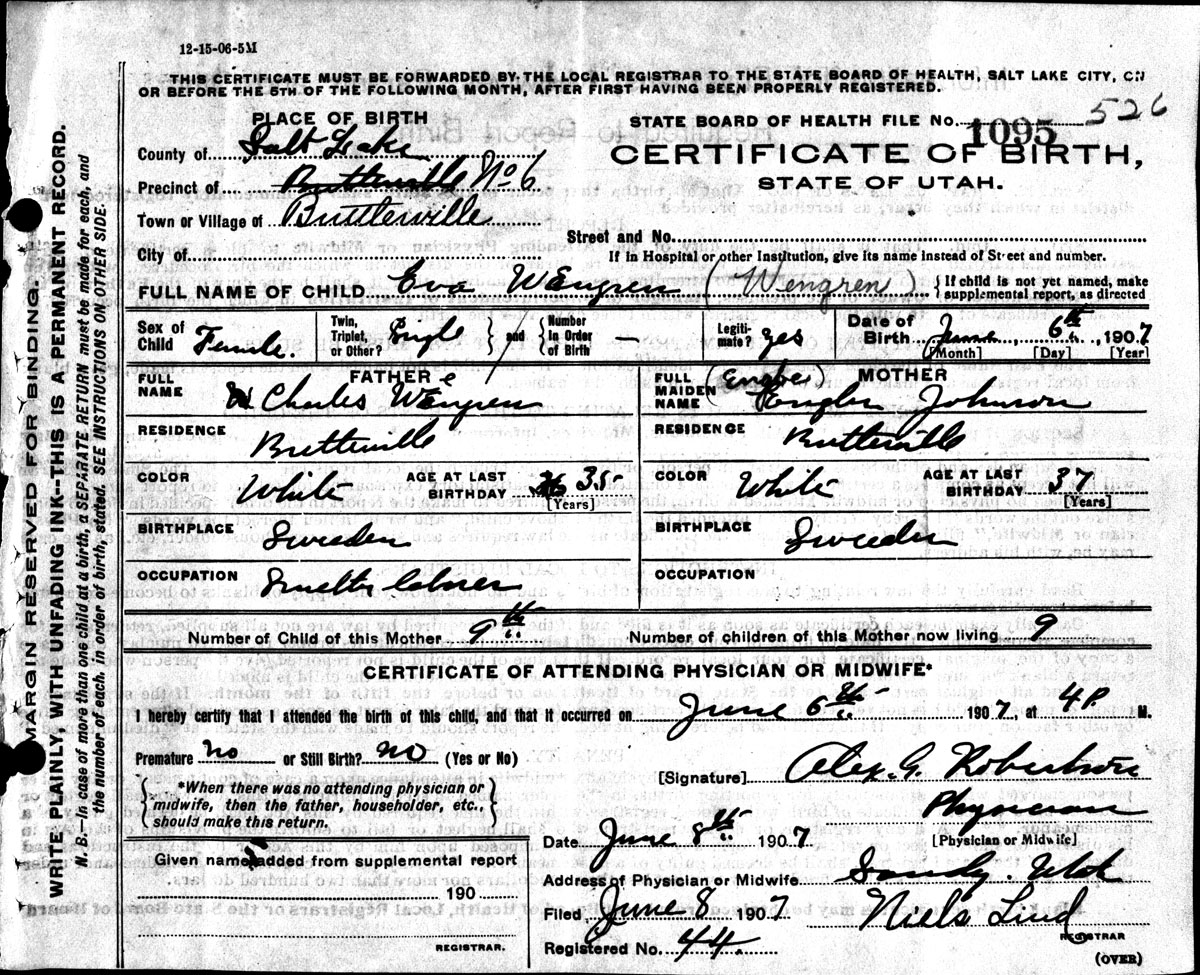 12-15-06-5M
THIS CERTIFICATE MUST BE FORWARDED BY THE LOCAL REGISTRAR TO THE STATE BOARD OF HEALTH, SALT LAKE CITY, ON
OR BEFORE THE 5TH OF THE FOLLOWING MONTH, AFTER FIRST HAVING BEEN PROPERLY REGISTERED.
PLACE OF BIRTH
County of Salt Lake
Precinct of Butterville No 6
Town or Village of Butterville
City of
STATE BOARD OF HEALTH FILE No. 1095 526
CERTIFICATE OF BIRTH,
STATE OF UTAH.
Street and No.
If in Hospital or other Institution, give its name instead of Street and number.
FULL NAME OF CHILD Eva Wengren (Wengren) } If child is not yet named, make supplemental report, as directed
Sex of Child Female. Twin, Triplet, or Other? Single } and { Number in Order of Birth — Legitimate? yes Date of Birth June 6th, 1907
[Month] [Day] [Year]
FATHER
FULL NAME Charles Wengren
RESIDENCE Butterville
COLOR White AGE AT LAST BIRTHDAY 35
[Years]
BIRTHPLACE Sweeden
OCCUPATION Smelter laborer
MOTHER
FULL MAIDEN NAME (Engbor) Johnson
RESIDENCE Butterville
COLOR White AGE AT LAST BIRTHDAY 37
[Years]
BIRTHPLACE Sweeden
OCCUPATION
Number of Child of this Mother 9th Number of children of this Mother now living 9
CERTIFICATE OF ATTENDING PHYSICIAN OR MIDWIFE*
I hereby certify that I attended the birth of this child, and that it occurred on June 6th 1907, at 4P. M.
Premature? no or Still Birth? NO (Yes or No)
{ *When there was no attending physician or midwife, then the father, householder, etc., should make this return. }
Given name added from supplemental report
190
REGISTRAR.
[Signature] Alex. G. Robertson
Physician
[Physician or Midwife]
Date June 8th 1907
Address of Physician or Midwife Sandy. Utah
Filed June 8 1907 Niels Lind
REGISTRAR
Registered No. 44
(OVER)
MARGIN RESERVED FOR BINDING.
WRITE PLAINLY WITH UNFADING INK--THIS IS A PERMANENT RECORD.
N. B.—In case of more than one child at a birth, a SEPARATE RETURN must be made for each, and
the number of each, in order of birth, stated. SEE INSTRUCTIONS ON OTHER SIDE.